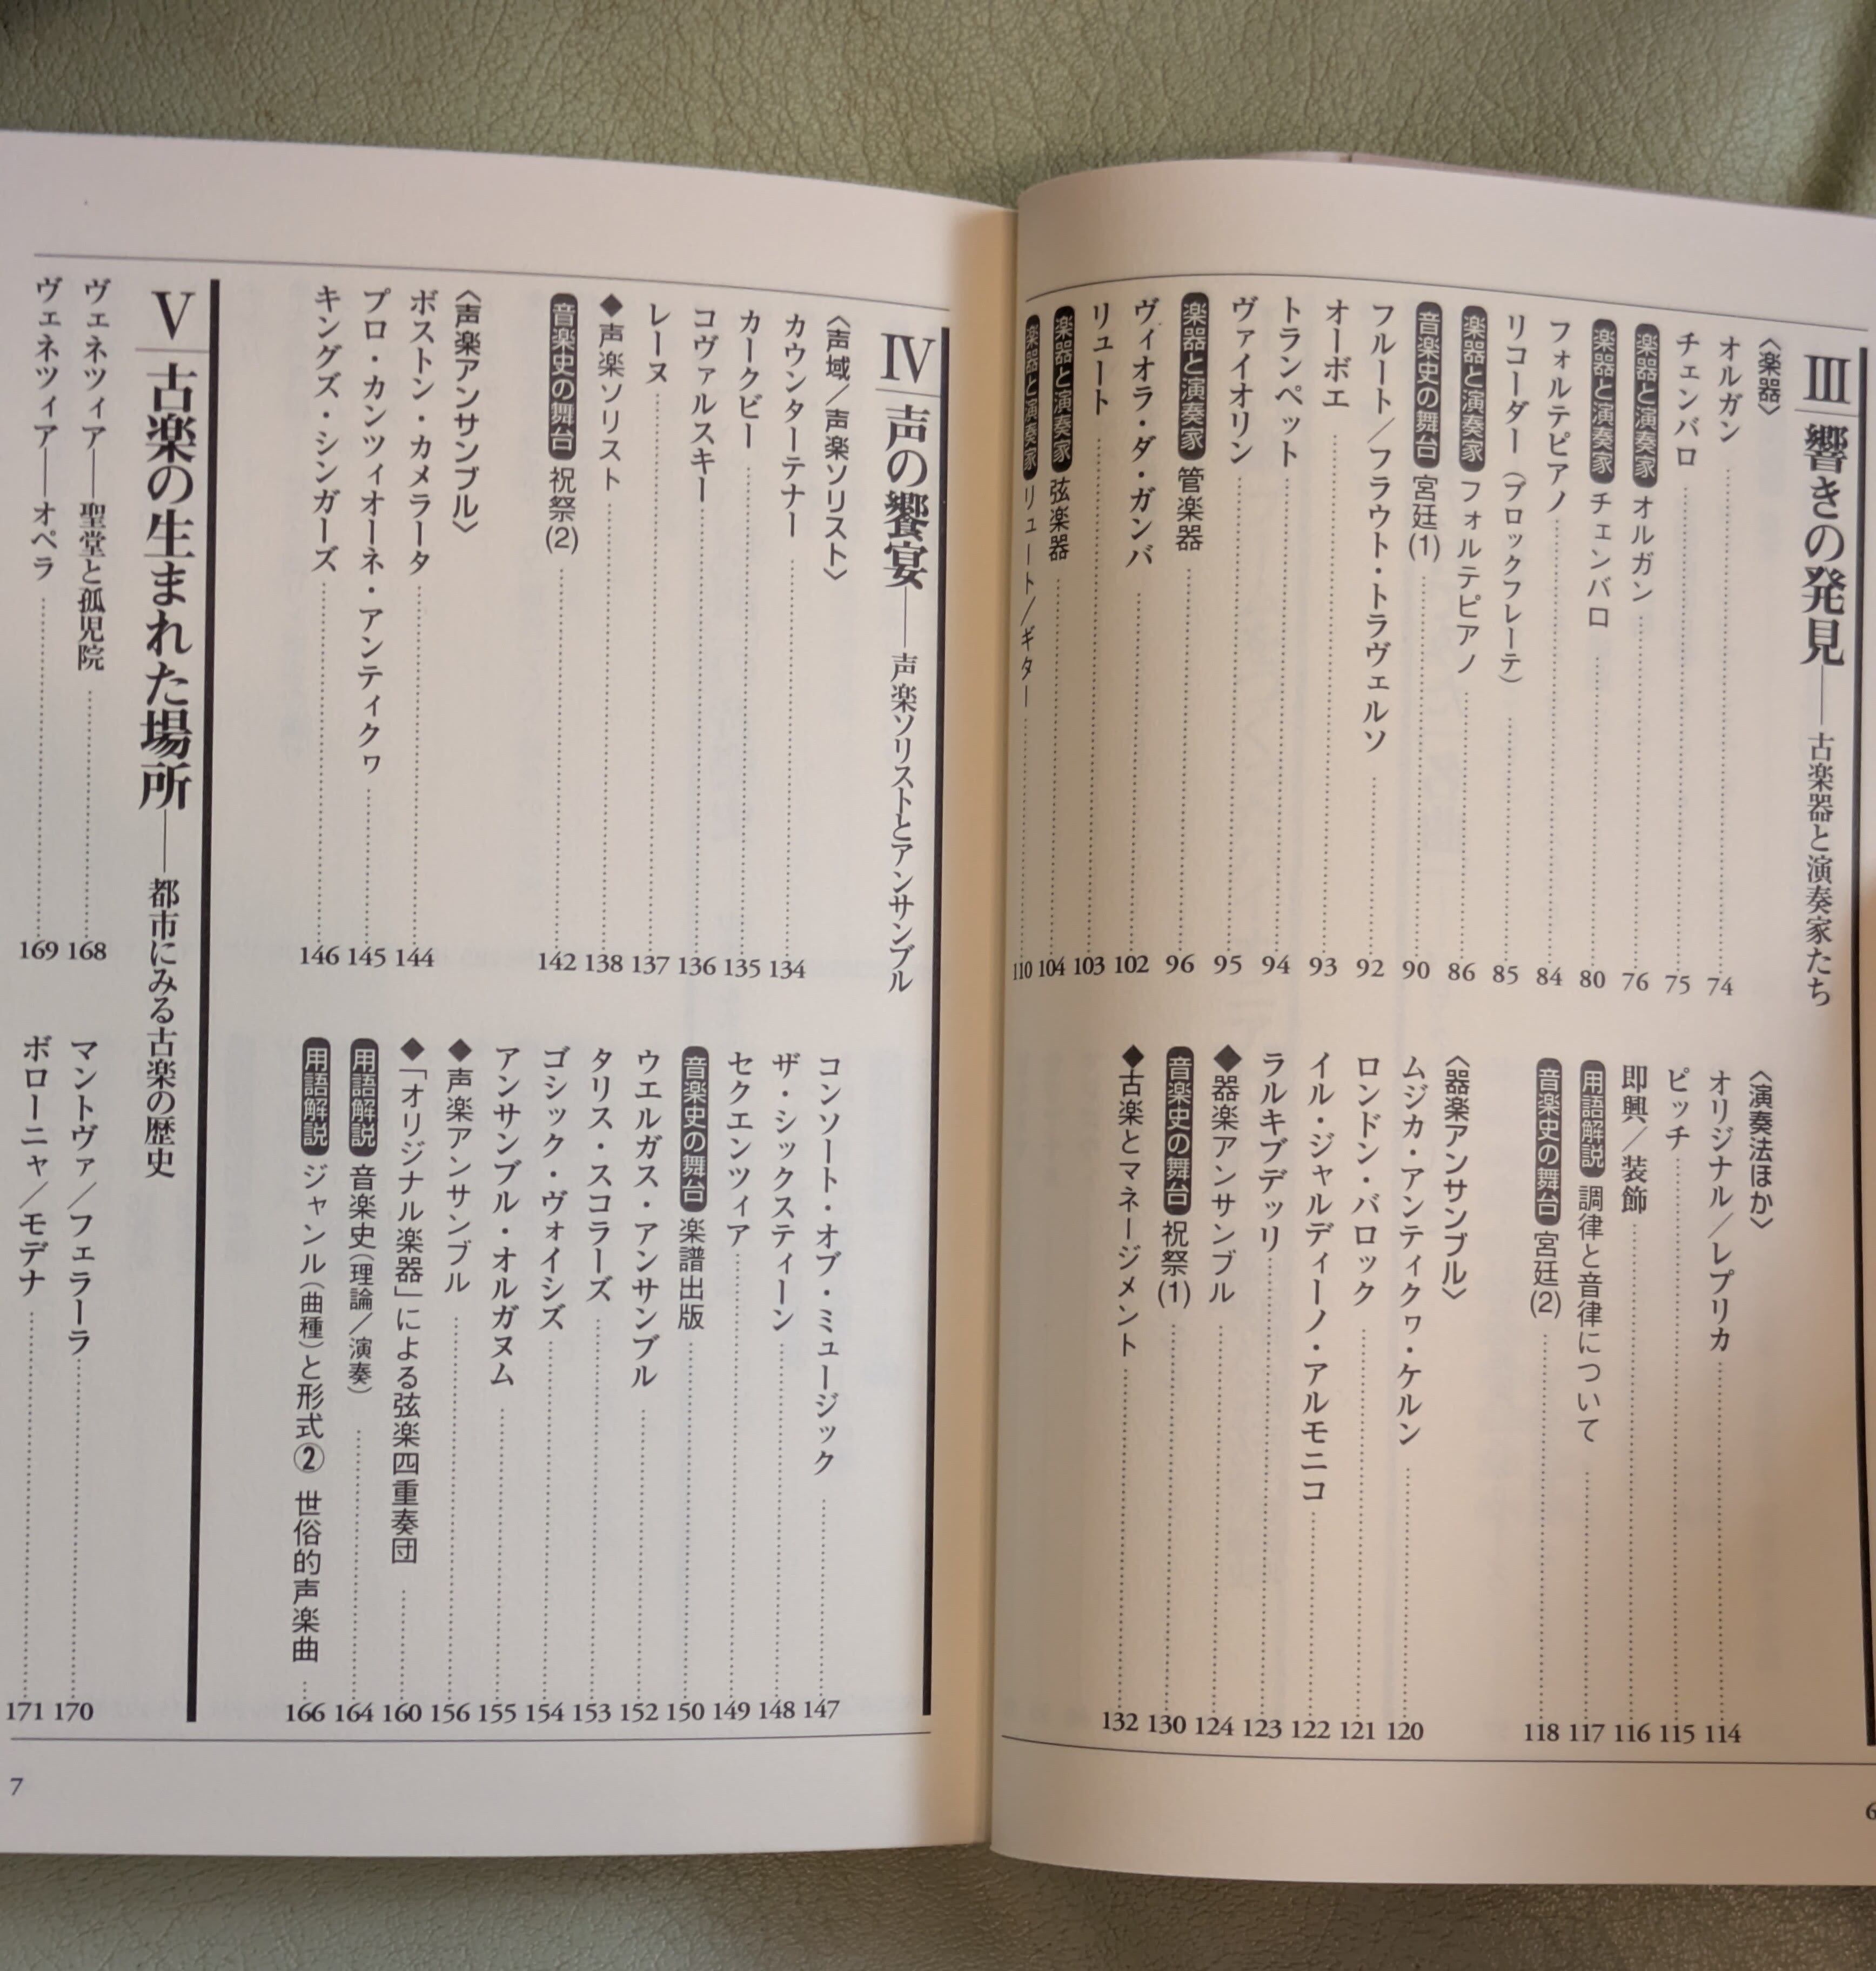 Ⅲ 響きの発見――古楽器と演奏家たち
〈楽器〉
オルガン 74
チェンバロ 75
楽器と演奏家 オルガン 76
楽器と演奏家 チェンバロ 80
フォルテピアノ 84
リコーダー（ブロックフレーテ） 85
楽器と演奏家 フォルテピアノ 86
音楽史の舞台 宮廷(1) 90
フルート／フラウト・トラヴェルソ 92
オーボエ 93
トランペット 94
ヴァイオリン 95
楽器と演奏家 管楽器 96
ヴィオラ・ダ・ガンバ 102
リュート 103
楽器と演奏家 弦楽器 104
楽器と演奏家 リュート／ギター 110
〈演奏法ほか〉
オリジナル／レプリカ 114
ピッチ 115
即興／装飾 116
用語解説 調律と音律について 117
音楽史の舞台 宮廷(2) 118
〈器楽アンサンブル〉
ムジカ・アンティクヮ・ケルン 120
ロンドン・バロック 121
イル・ジャルディーノ・アルモニコ 122
ラルキブデッリ 123
◆器楽アンサンブル 124
音楽史の舞台 祝祭(1) 130
◆古楽とマネージメント 132
6
Ⅳ 声の饗宴――声楽ソリストとアンサンブル
〈声域／声楽ソリスト〉
カウンターテナー 134
カークビー 135
コヴァルスキー 136
レーヌ 137
◆声楽ソリスト 138
音楽史の舞台 祝祭(2) 142
〈声楽アンサンブル〉
ボストン・カメラータ 144
プロ・カンツィオーネ・アンティクヮ 145
キングズ・シンガーズ 146
コンソート・オブ・ミュージック 147
ザ・シックスティーン 148
セクエンツィア 149
音楽史の舞台 楽譜出版 150
ウエルガス・アンサンブル 152
タリス・スコラーズ 153
ゴシック・ヴォイシズ 154
アンサンブル・オルガヌム 155
◆声楽アンサンブル 156
◆「オリジナル楽器」による弦楽四重奏団 160
用語解説 音楽史（理論／演奏） 164
用語解説 ジャンル（曲種）と形式② 世俗的声楽曲 166
Ⅴ 古楽の生まれた場所――都市にみる古楽の歴史
ヴェネツィア――聖堂と孤児院 168
ヴェネツィア――オペラ 169
マントヴァ／フェラーラ 170
ボローニャ／モデナ 171
7